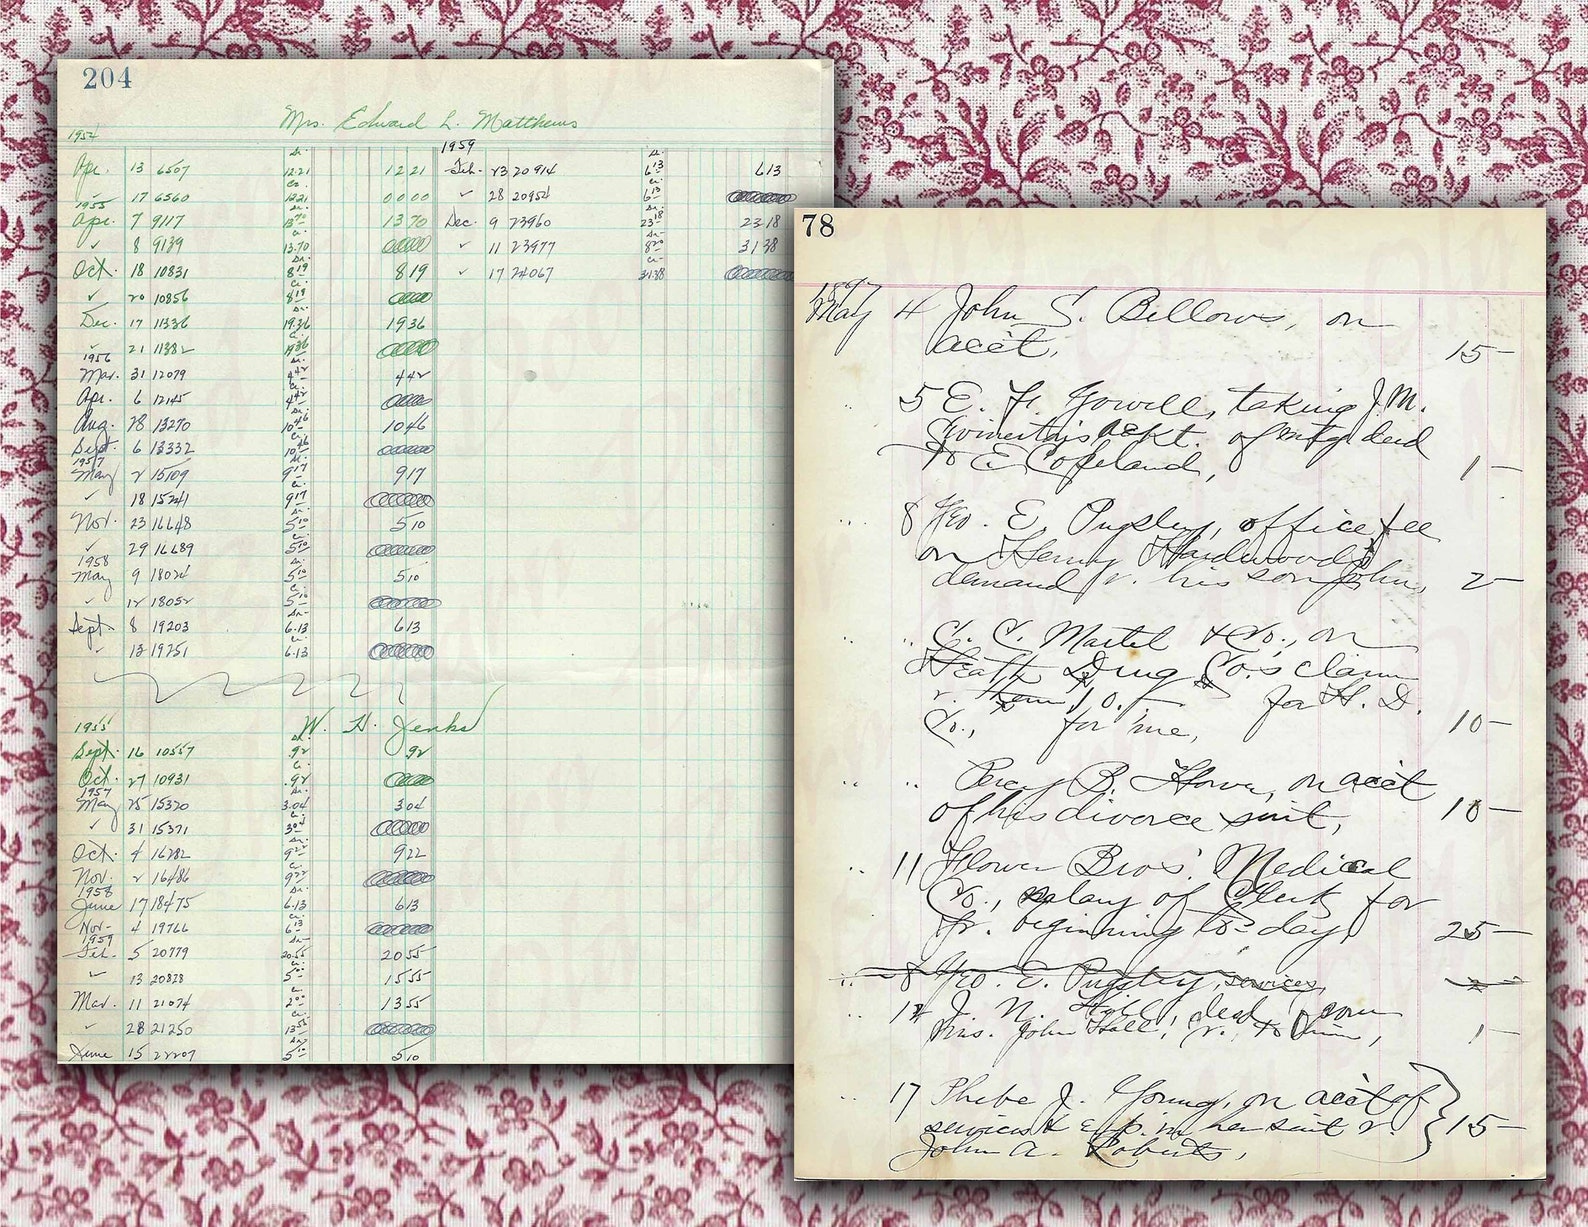 204
Mrs. Edward L. Matthews
1954
Apr. 13 6507 Dr. 12.21 12 21
17 6560 Cr. 12.21 0000
1955
Apr. 7 9117 Dr. 13.70 13 70
✓ 8 9139 Cr. 13.70
Oct. 18 10831 Dr. 8 19 8 19
✓ 20 10856 Cr. 8 19
Dec. 17 11336 Dr. 19.36 19 36
✓ 21 11382 Cr. 19 36
1956
Mar. 31 12079 Dr. 4 42 4 42
Apr. 6 12145 Cr. 4 42
Aug. 28 13270 Dr. 10 46 10 46
Sept. 6 13332 Cr. 10 46
1957
May 2 15109 Dr. 9 17 9 17
✓ 18 15241 Cr. 9 17
Nov. 23 16648 Dr. 5 10 5 10
✓ 29 16689 Cr. 5 10
1958
May 9 18024 Dr. 5 10 5 10
✓ 12 18052 Cr. 5 10
Sept. 8 19203 Dr. 6.13 6 13
✓ 13 19251 Cr. 6.13
1959
Feb. 23 20914 Dr. 6 13 6 13
✓ 28 20954 Cr. 6 13
Dec. 9 23960 Dr. 23 18 23 18
✓ 11 23977 Dr. 8 20 31 38
✓ 17 24067 Cr. 31.38
W. H. Jenks
1955
Sept. 16 10557 Dr. .92 92
Oct. 27 10931 Cr. .92
1957
May 25 15320 Dr. 3.04 3 04
✓ 31 15371 Cr. 3 04
Oct. 4 16282 Dr. 9 22 9 22
Nov. 2 16486 Cr. 9 22
1958
June 17 18475 Dr. 6.13 6 13
Nov. 4 19766 Cr. 6 13
1959
Feb. 5 20779 Dr. 20.55 20 55
✓ 13 20828 Cr. 5 00 15 55
Mar. 11 21074 Cr. 2 00 13 55
✓ 28 21250 Cr. 13 55
June 15 22207 Dr. 5 10 5 10
78
1897
May 4 John S. Bellows, on
acc't, 15—
5 E. F. Gowell, taking J. M.
ackt. of mtg deed
to E Copeland, 1—
8 Geo. E. Pugsley, office fee
on Henry Hardwood's
demand v. his son John, 2—
C. C. Martel & Co., on
Heath Drug Co.'s claim
v. them, 10. for H. D.
Co., for me, 10—
Percy B. Howe, on acc't
of his divorce suit, 10—
11 Flower Bros' Medical
Co., salary of Clerk for
yr. beginning to-day, 25—
8 Geo. E. Pugsley, services, 2—
12 J. N. Hall, deed from
Mrs. John Hall, Jr., to him, 1—
17 Phebe J. Young, on acc't of
services & exp. in her suit v. 15—
John A. Roberts,